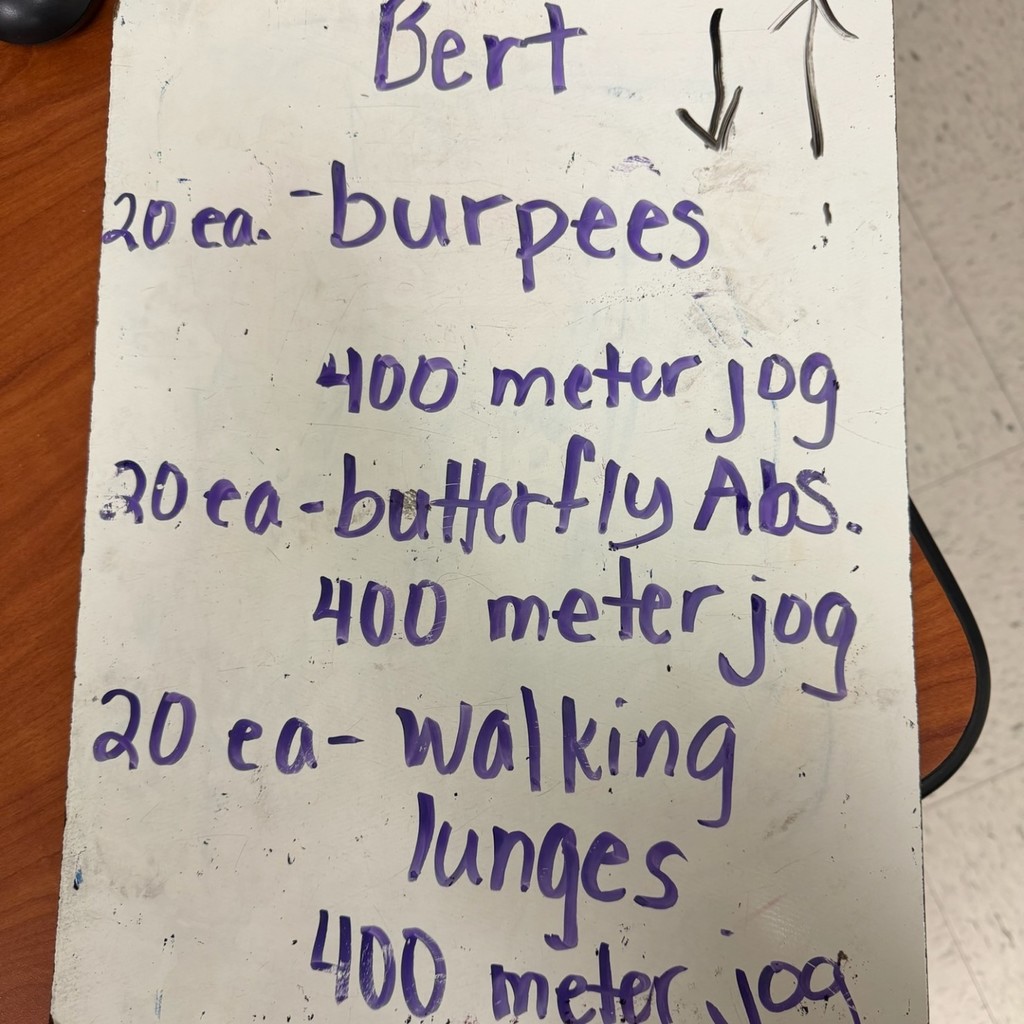 Bert
20 ea. - burpees
400 meter jog
20 ea - butterfly Abs.
400 meter jog
20 ea - walking
lunges
400 meter jog